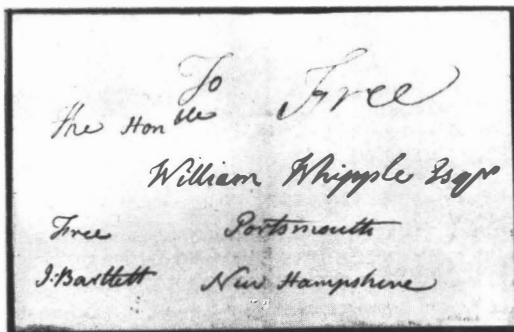 To Free
The Honble
William Whipple Esqr
Free Portsmouth
J. Bartlett New Hampshire